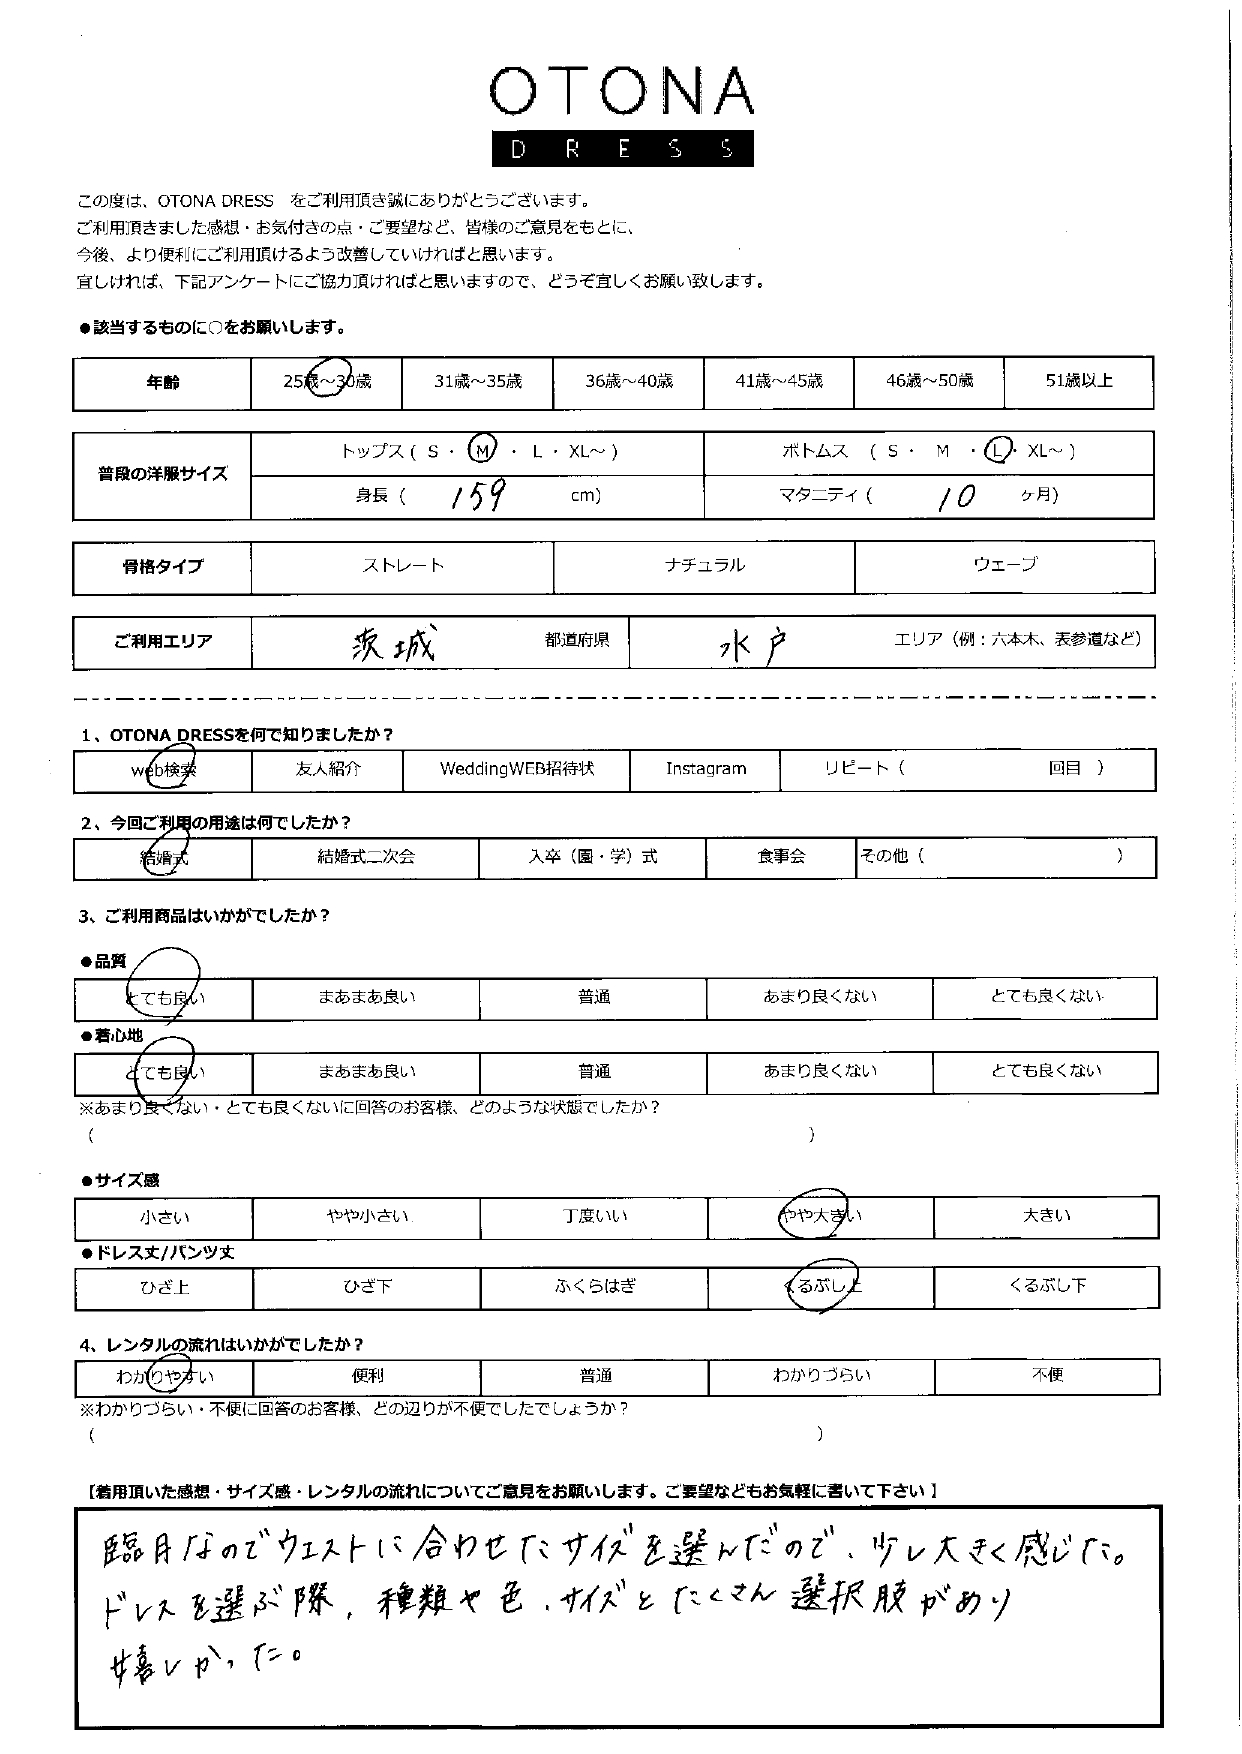 OTONA
DRESS
この度は、OTONA DRESS　をご利用頂き誠にありがとうございます。
ご利用頂きました感想・お気付きの点・ご要望など、皆様のご意見をもとに、
今後、より便利にご利用頂けるよう改善していければと思います。
宜しければ、下記アンケートにご協力頂ければと思いますので、どうぞ宜しくお願い致します。
●該当するものに○をお願いします。
年齢 25歳～30歳 31歳～35歳 36歳～40歳 41歳～45歳 46歳～50歳 51歳以上
普段の洋服サイズ
トップス ( S ・ M ・ L ・ XL～ ) ボトムス ( S ・ M ・ L ・ XL～ )
身長 ( 159 cm) マタニティ ( 10 ヶ月)
骨格タイプ ストレート ナチュラル ウェーブ
ご利用エリア 茨城 都道府県 水戸 エリア（例：六本木、表参道など）
1、OTONA DRESSを何で知りましたか？
web検索 友人紹介 WeddingWEB招待状 Instagram リピート（ 回目 ）
2、今回ご利用の用途は何でしたか？
結婚式 結婚式二次会 入卒（園・学）式 食事会 その他（ ）
3、ご利用商品はいかがでしたか？
●品質
とても良い まあまあ良い 普通 あまり良くない とても良くない
●着心地
とても良い まあまあ良い 普通 あまり良くない とても良くない
※あまり良くない・とても良くないに回答のお客様、どのような状態でしたか？
（ ）
●サイズ感
小さい やや小さい 丁度いい やや大きい 大きい
●ドレス丈/パンツ丈
ひざ上 ひざ下 ふくらはぎ くるぶし上 くるぶし下
4、レンタルの流れはいかがでしたか？
わかりやすい 便利 普通 わかりづらい 不便
※わかりづらい・不便に回答のお客様、どの辺りが不便でしたでしょうか？
（ ）
【着用頂いた感想・サイズ感・レンタルの流れについてご意見をお願いします。ご要望などもお気軽に書いて下さい】
臨月なのでウエストに合わせたサイズを選んだので、少し大きく感じた。
ドレスを選ぶ際、種類や色、サイズとたくさん選択肢があり
嬉しかった。